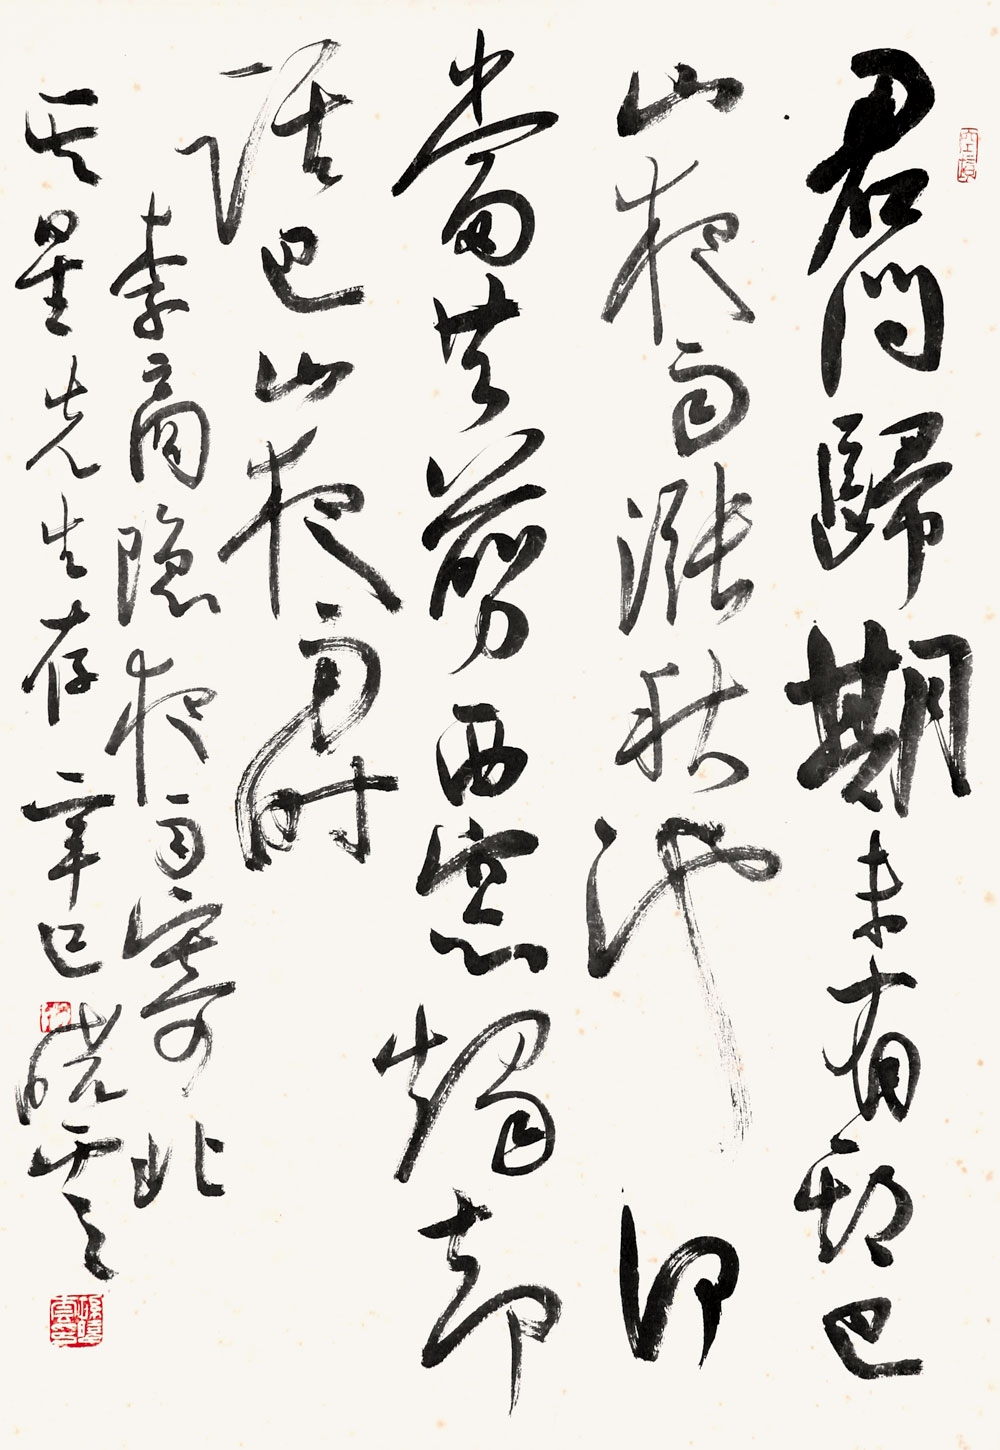 君問歸期未有期巴
山夜雨漲秋池何
當共剪西窓燭却
話巴山夜雨时
李商隐夜雨寄北
其星先生存辛巳晓雲
孫曉雲印